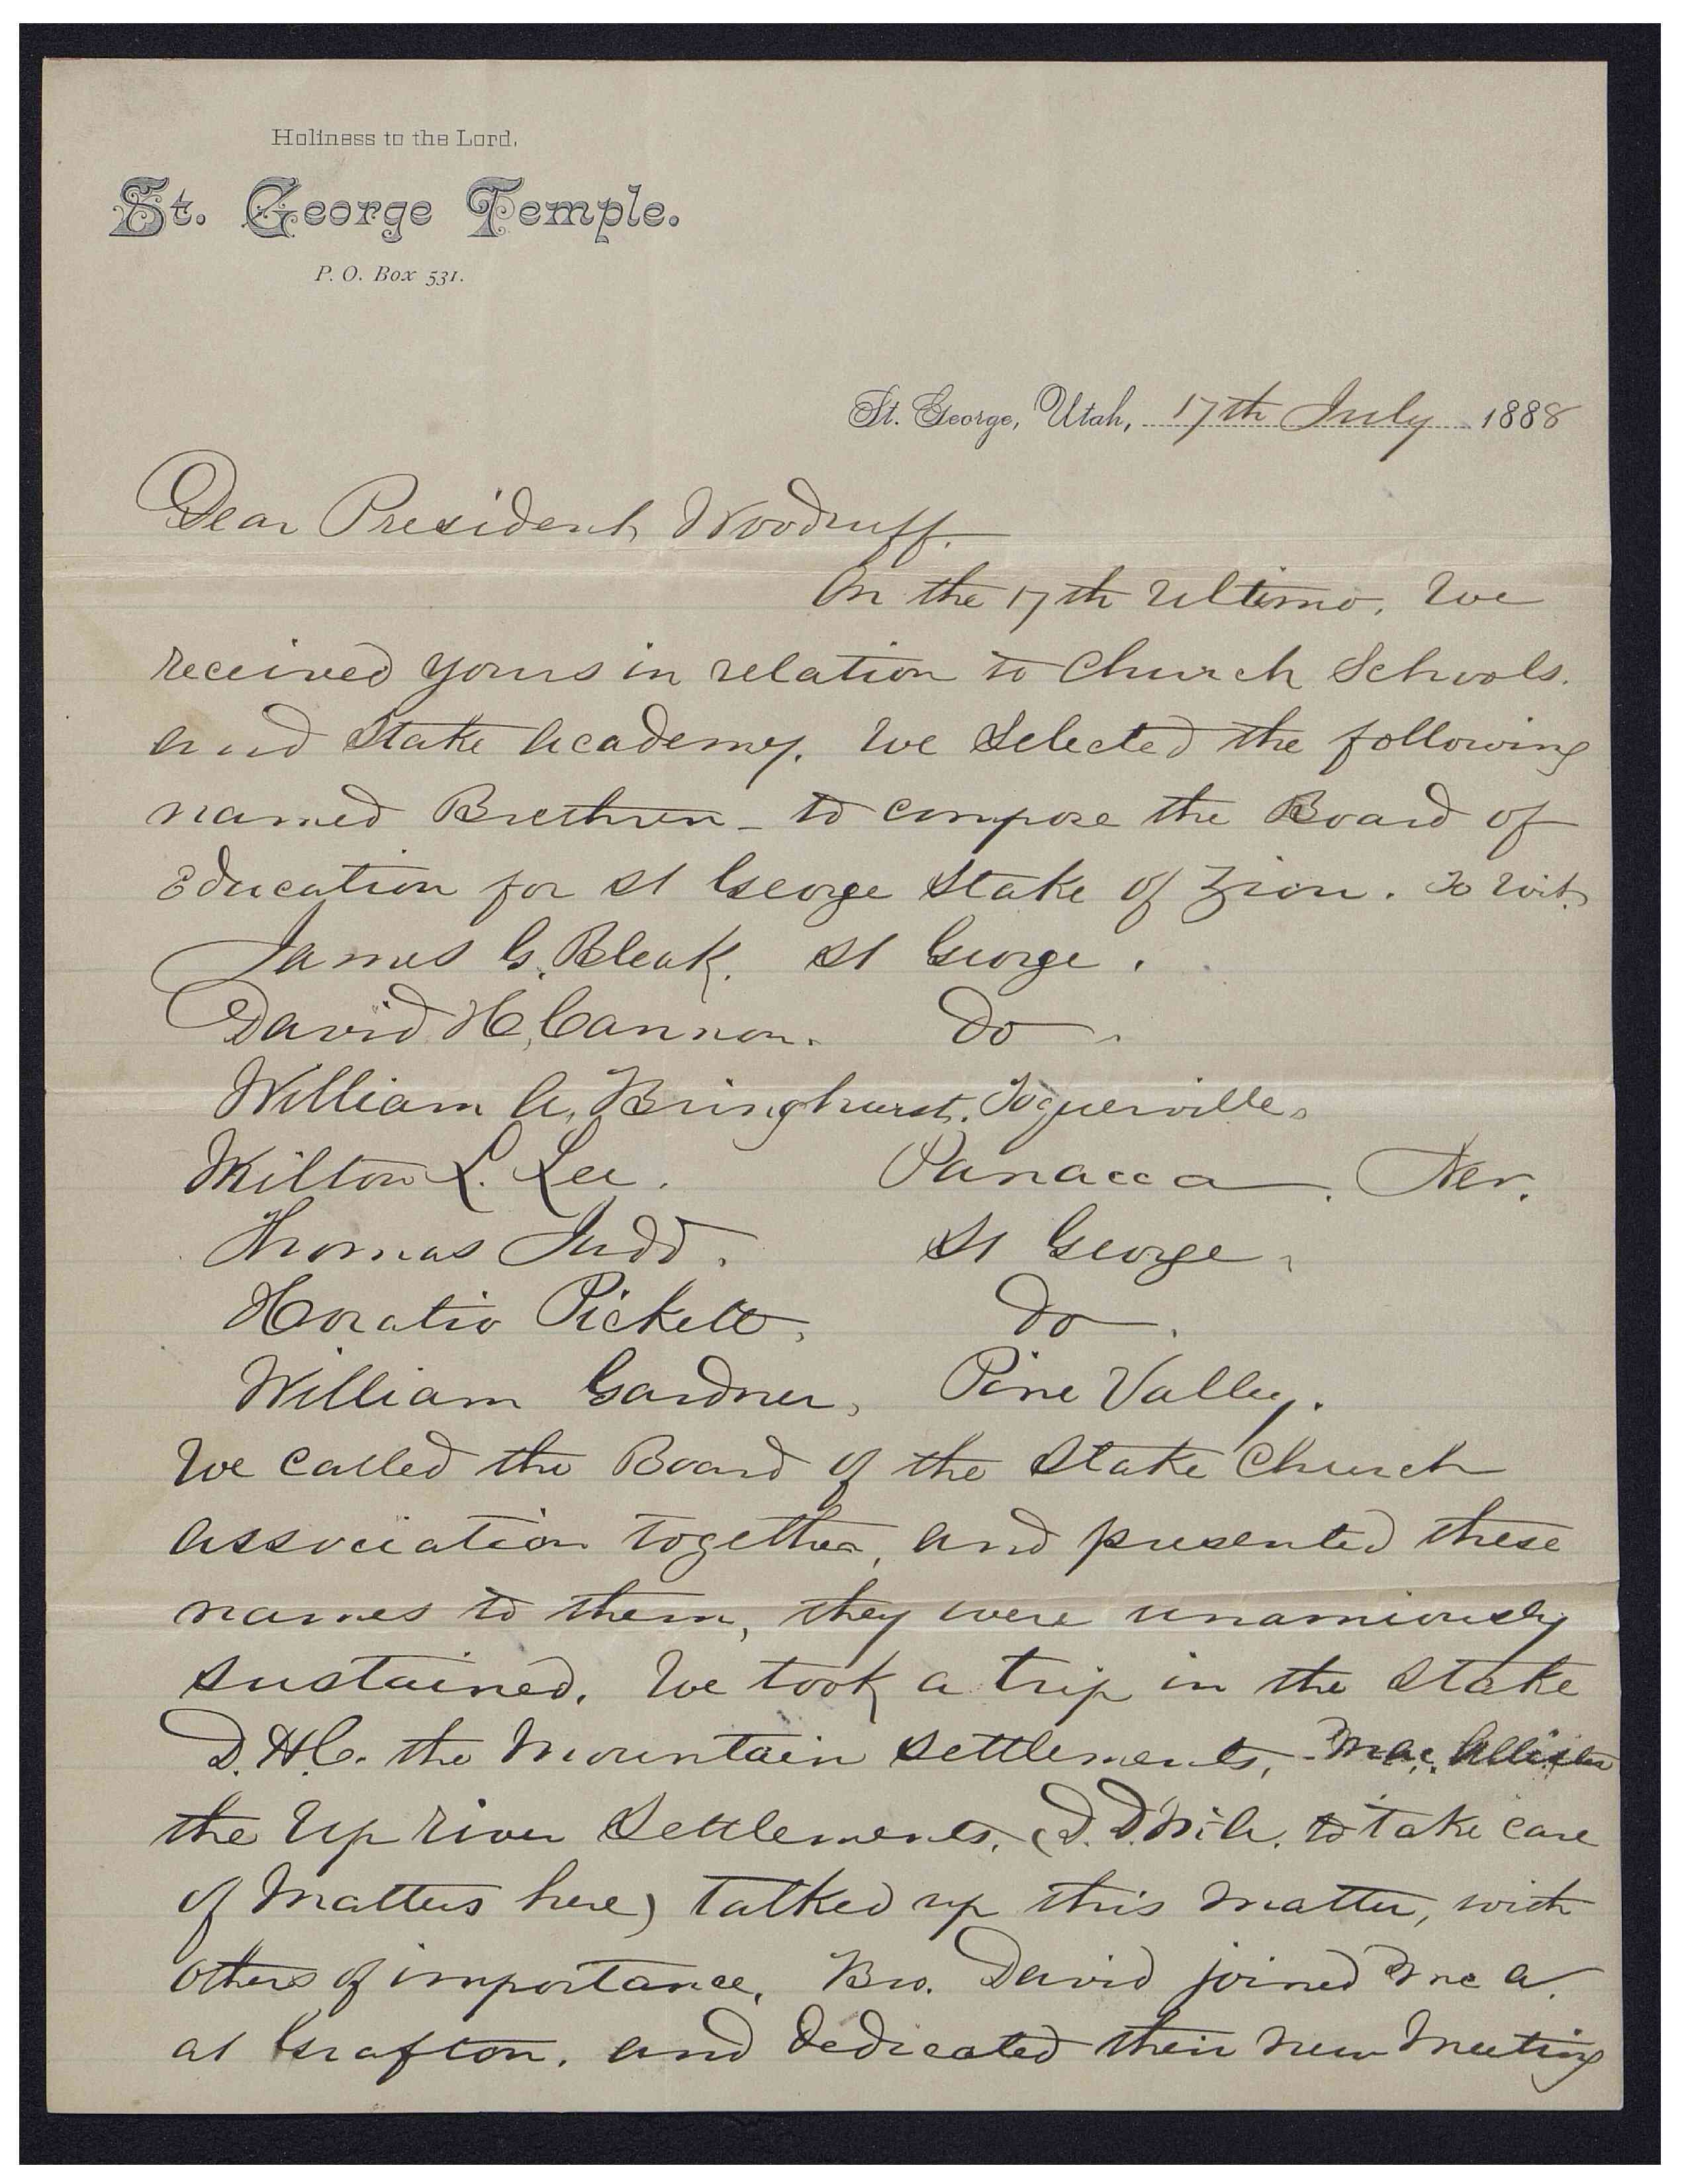 Holiness to the Lord,
St. George Temple.
P. O. Box 531.
St. George, Utah, 17th July 1888
Dear President Woodruff.
On the 17th Ultimo, We
received yours in relation to Church Schools.
and Stake Academy. We Selected the following
named Brethren - to compose the Board of
Education for St George Stake of Zion. To Wit.
James G. Bleak. St George.
David H. Cannon. Do
William A. Bringhurst. Toquerville.
Milton L. Lee. Panacca. Nev.
Thomas Judd. St George.
Horatio Pickett, Do.
William Gardner, Pine Valley.
We called the Board of the Stake Church
Association together, and presented these
names to them, they were unamiously
sustained. We took a trip in the Stake
D. H. C. the Mountain Settlements, Mac. Allister
the Up river Settlements, (D. D. McA. to take care
of Matters here) talked up this matter, with
others of importance. Bro. David joined Mc A.
at Grafton. and dedicated their new Meeting